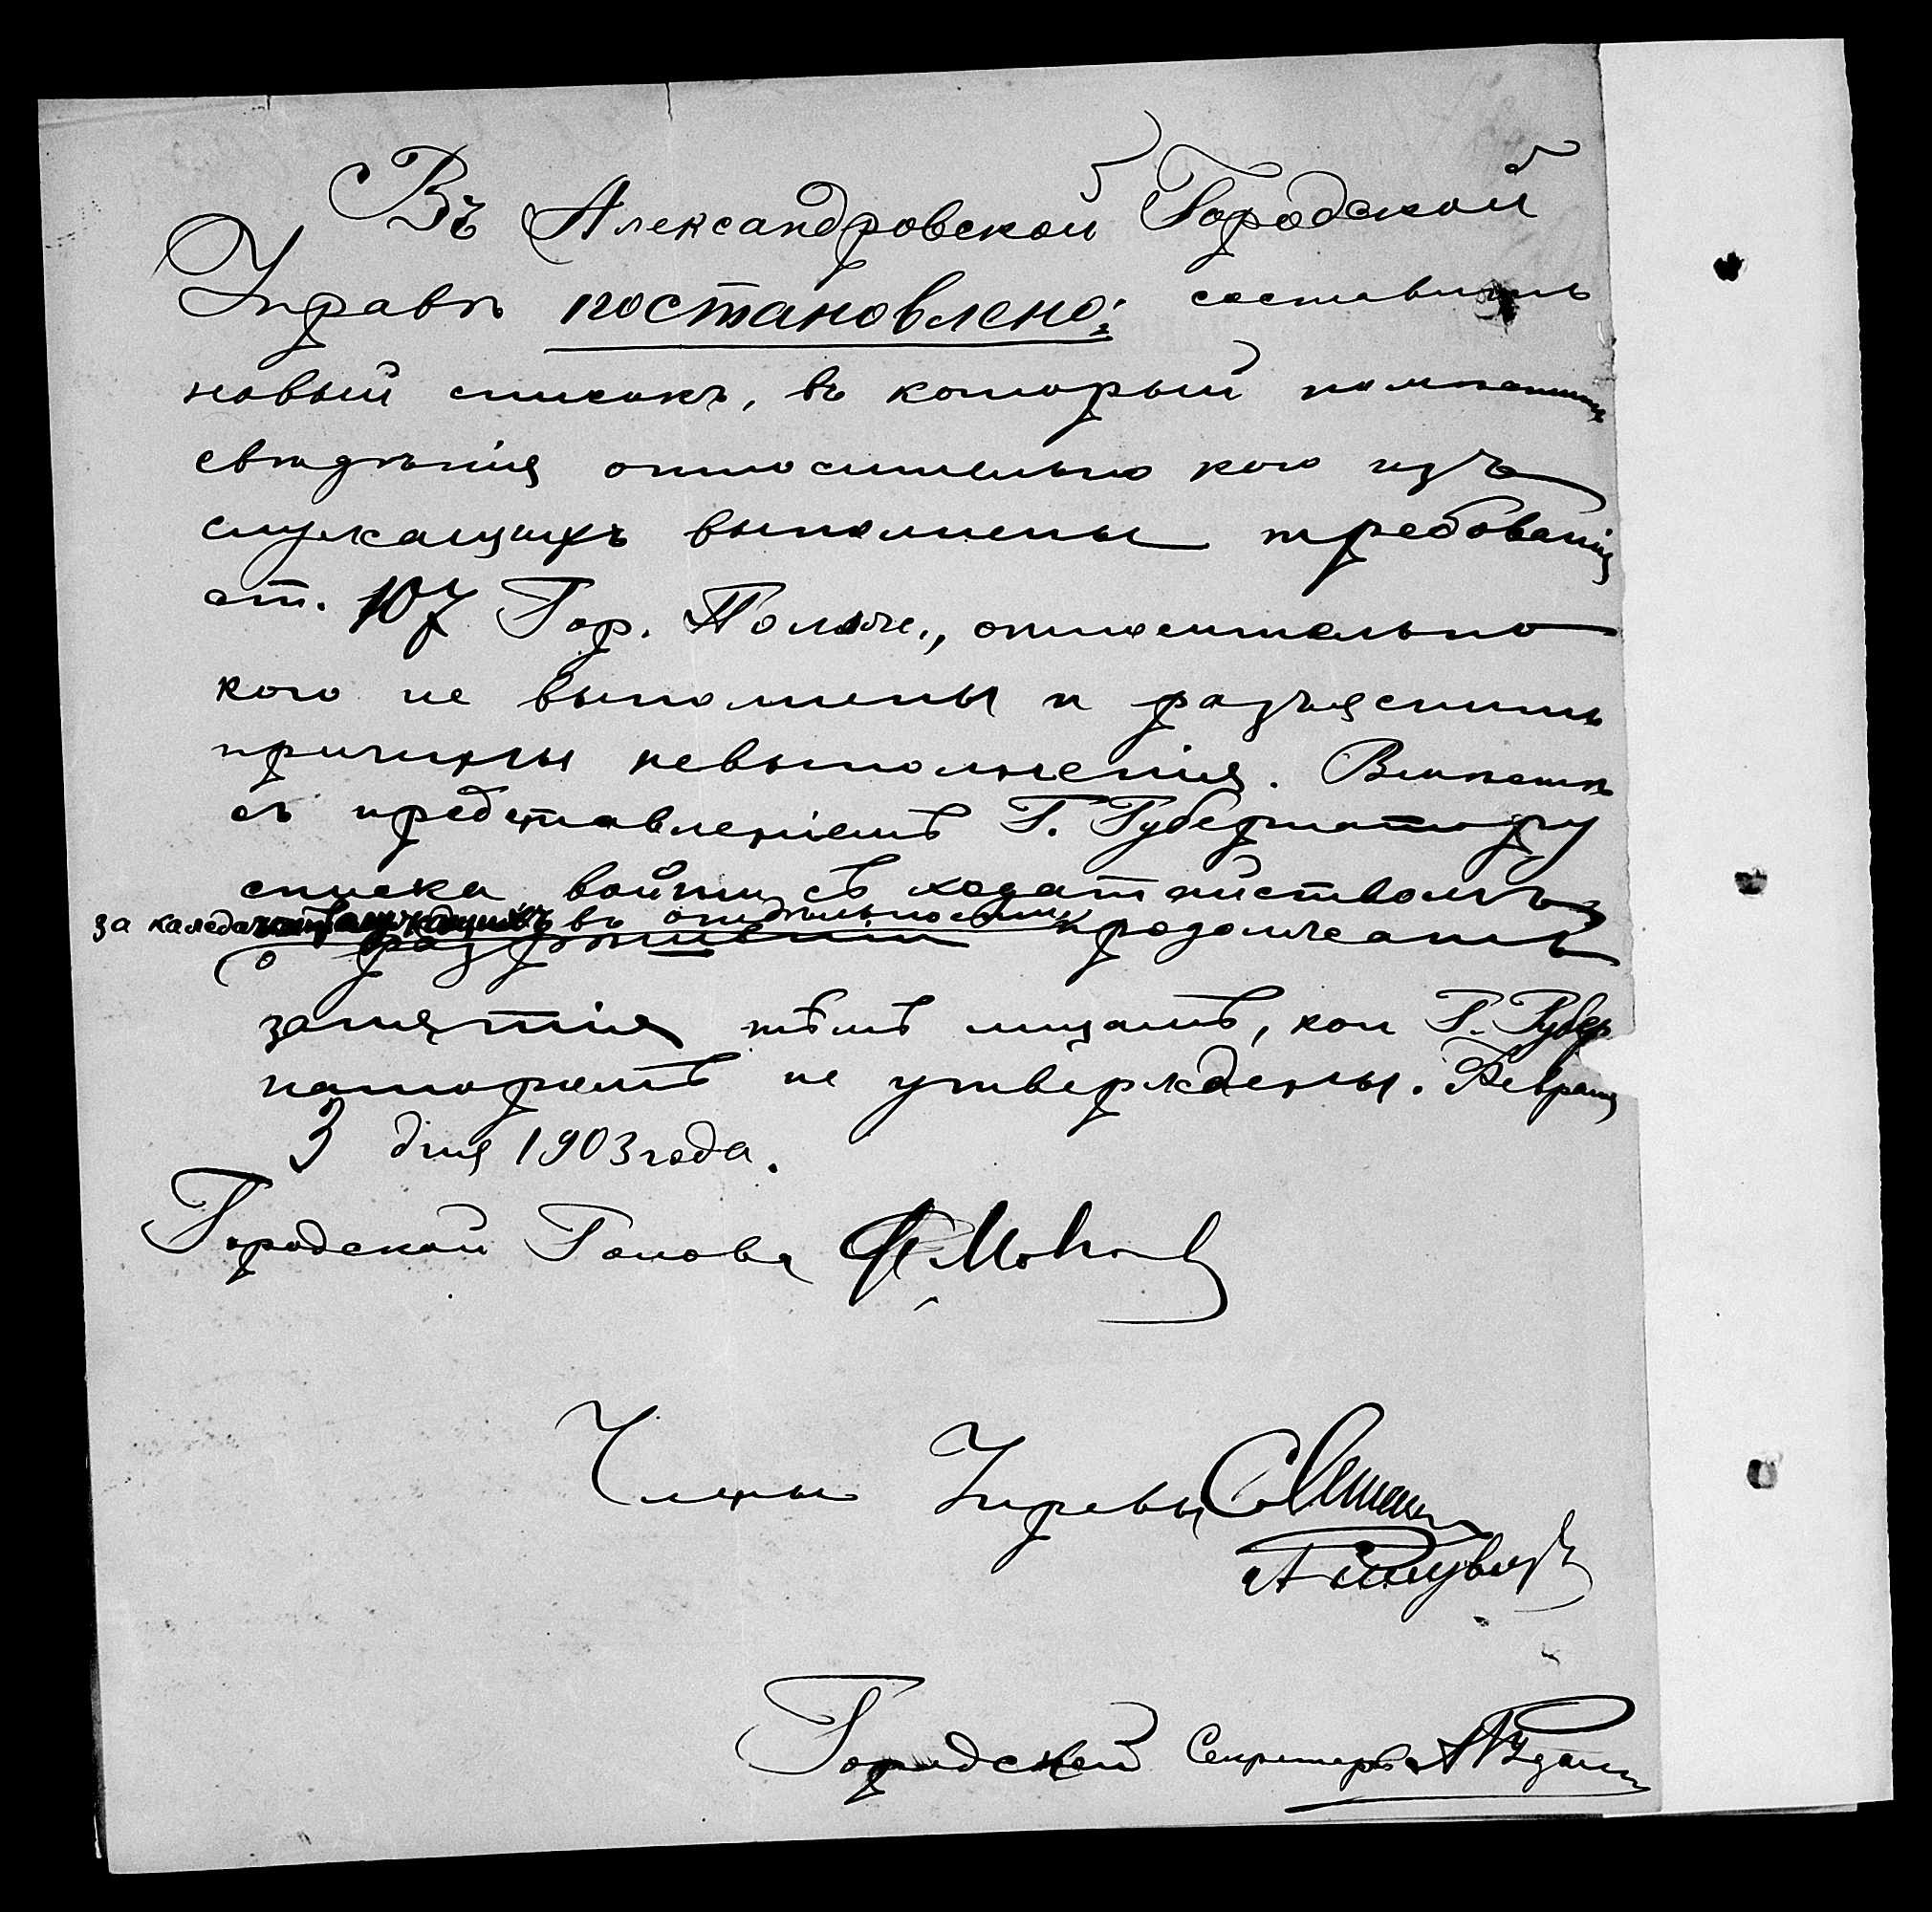 Въ Александровской Городской
Управѣ постановлено: составить
новый списокъ, въ который помѣстить
свѣдѣнія относительно кого изъ
служащихъ выполнены требованія
ст. 107 Гор. Полож., относительно
кого не выполнены и разъяснить
причины невыполненія. Вмѣстѣ
съ представленіемъ Г. Губернатору
списка войти съ ходатайствомъ
за каждаго въ отдѣльности
о разрѣшеніи продолжать
занятія тѣмъ лицамъ, кои Г. Губер
наторомъ не утверждены. Февраля
3 дня 1903 года.
Городской Голова
Члены Управы
Городской Секретарь